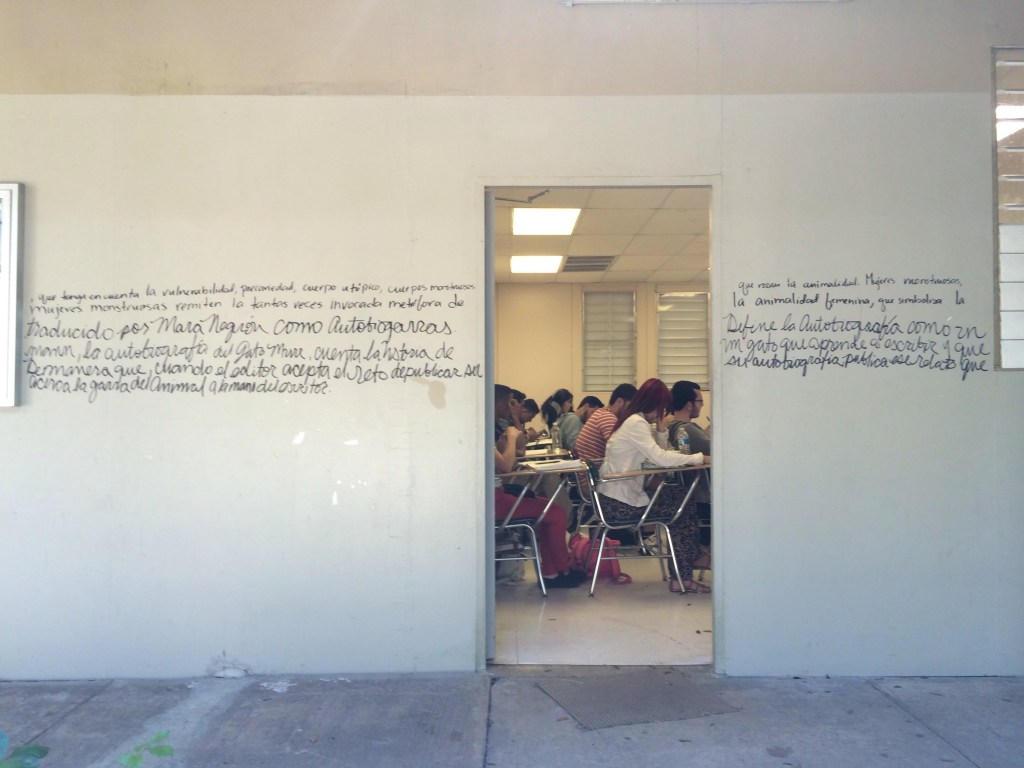 , que tenga en cuenta la vulnerabilidad, precariedad, cuerpo utópico, cuerpos monstruosos
mujeres monstruosas remiten la tantas veces invocada metáfora de
traducido por Mara Negrón como Autobiogarras.
la autobiografía del Gato Murr, cuenta la historia de
De manera que, cuando el editor acepta el reto de publicar su
acerca la garra del Animal a la mano del escritor.
que rozan la animalidad. Mujeres monstruosas,
la animalidad femenina, que simboliza la
Define la Autobiografía como un
un gato que aprende a escribir y que
su autobiografía publica ese relato que